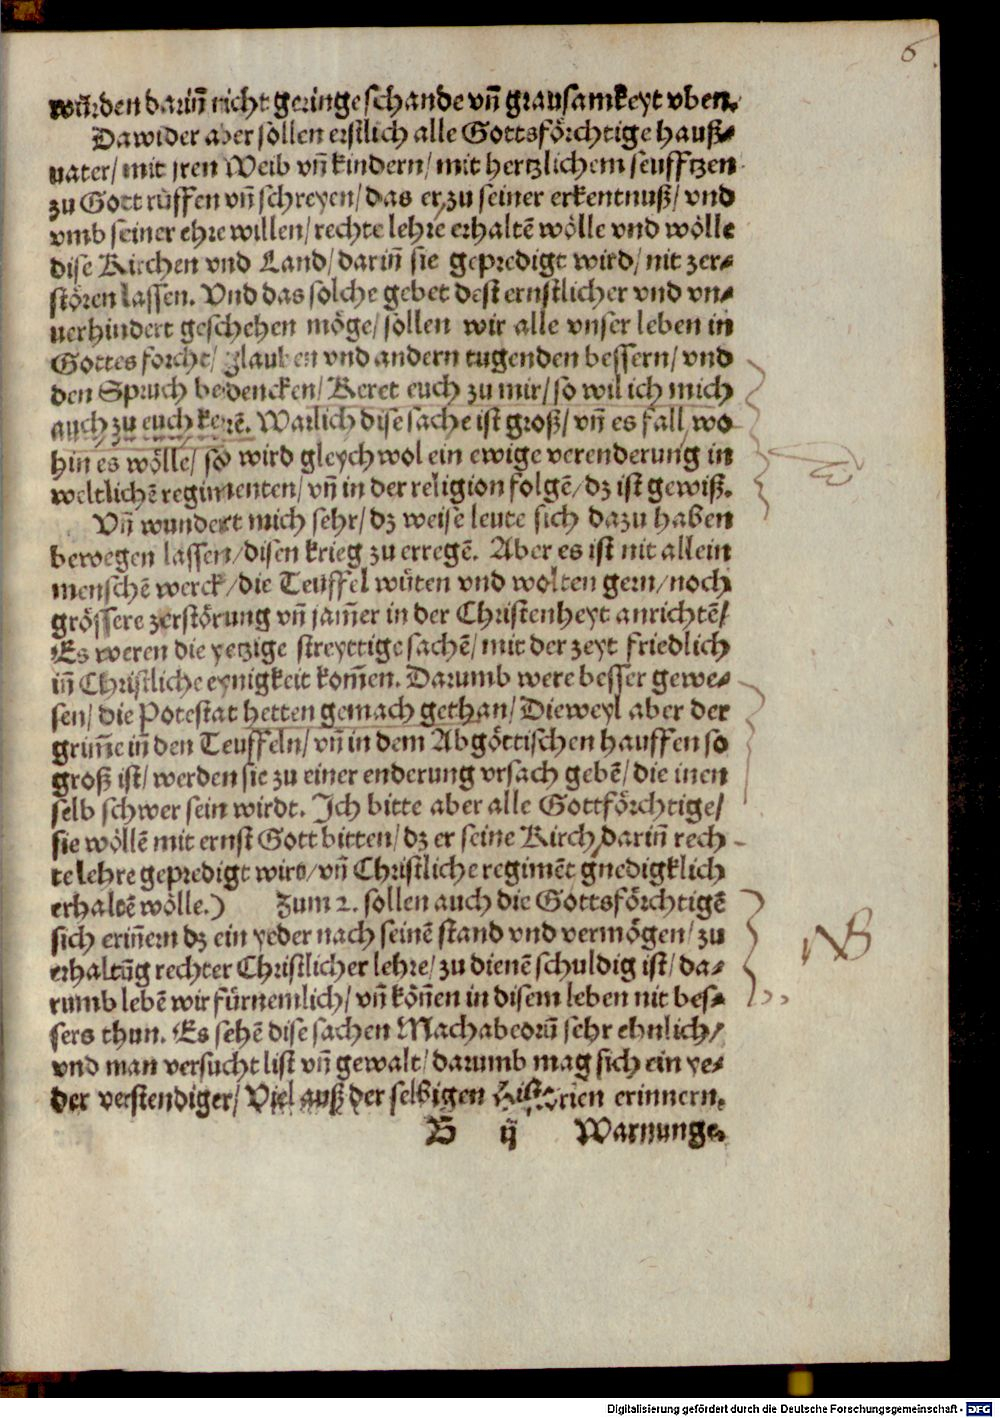 6
würden dariñ nicht geringe schande vñ grausamkeyt vben.
Dawider aber sollen erstlich alle Gottsförchtige hauß⸗
uater/ mit jren Weib vñ kindern/ mit hertzlichem seufftzen
zu Gott rüffen vñ schreyen/ das er, zu seiner erkentnuß/ vnd
vmb seiner ehre willen/ rechte lehre erhaltē wölle vnd wölle
dise Kirchen vnd Land/ dariñ sie gepredigt wird/ nit zer⸗
stören lassen. Vnd das solche gebet dest ernstlicher vnd vn⸗
uerhindert geschehen möge/ sollen wir alle vnser leben in
Gottes forcht/ glauben vnd andern tugenden bessern/ vnd
den Spruch bedencken/ Keret euch zu mir/ so wil ich mich
auch zu euch kerē. Warlich dise sache ist groß/ vñ es fall, wo
hin es wölle/ so wird gleychwol ein ewige verenderung in
weltlichē regimenten/ vñ in der religion folgē/ dz ist gewiß.
Vñ wundert mich sehr/ dz weise leute sich dazu haben
bewegen lassen/ disen krieg zu erregē. Aber es ist nit allein
menschē werck/ die Teuffel wüten vnd wolten gern/ noch
grössere zerstörung vñ jam̃er in der Christenheyt anrichtē/
Es weren die yetzige streyttige sachē/ mit der zeyt friedlich
iñ Christliche eynigkeit kom̃en. Darumb were besser gewe⸗
sen/ die Potestat hetten gemach gethan/ Dieweyl aber der
grim̃e iñ den Teuffeln/ vñ in dem Abgöttischen hauffen so
groß ist/ werden sie zu einer enderung vrsach gebē/ die inen
selb schwer sein wirdt. Ich bitte aber alle Gottförchtige/
sie wöllē mit ernst Gott bitten/ dz er seine Kirch, dariñ rech
te lehre gepredigt wird/ vñ Christliche regimēt gnedigklich
erhaltē wölle.) Zum 2. sollen auch die Gottsförchtigē
sich eriñern dz ein yeder nach seinē stand vnd vermögen/ zu
erhaltūg rechter Christlicher lehre/ zu dienē schuldig ist/ da⸗
rumb lebē wir fürnemlich/ vñ köñen in disem leben nit bes⸗
sers thun. Es sehē dise sachen Machabeorū sehr ehnlich/
vnd man versucht list vñ gewalt/ darumb mag sich ein ye⸗
der verstendiger/ Viel auß der selbigen Historien erinnern.
B ij Warnunge.
NB
Digitalisierung gefördert durch die Deutsche Forschungsgemeinschaft - DFG